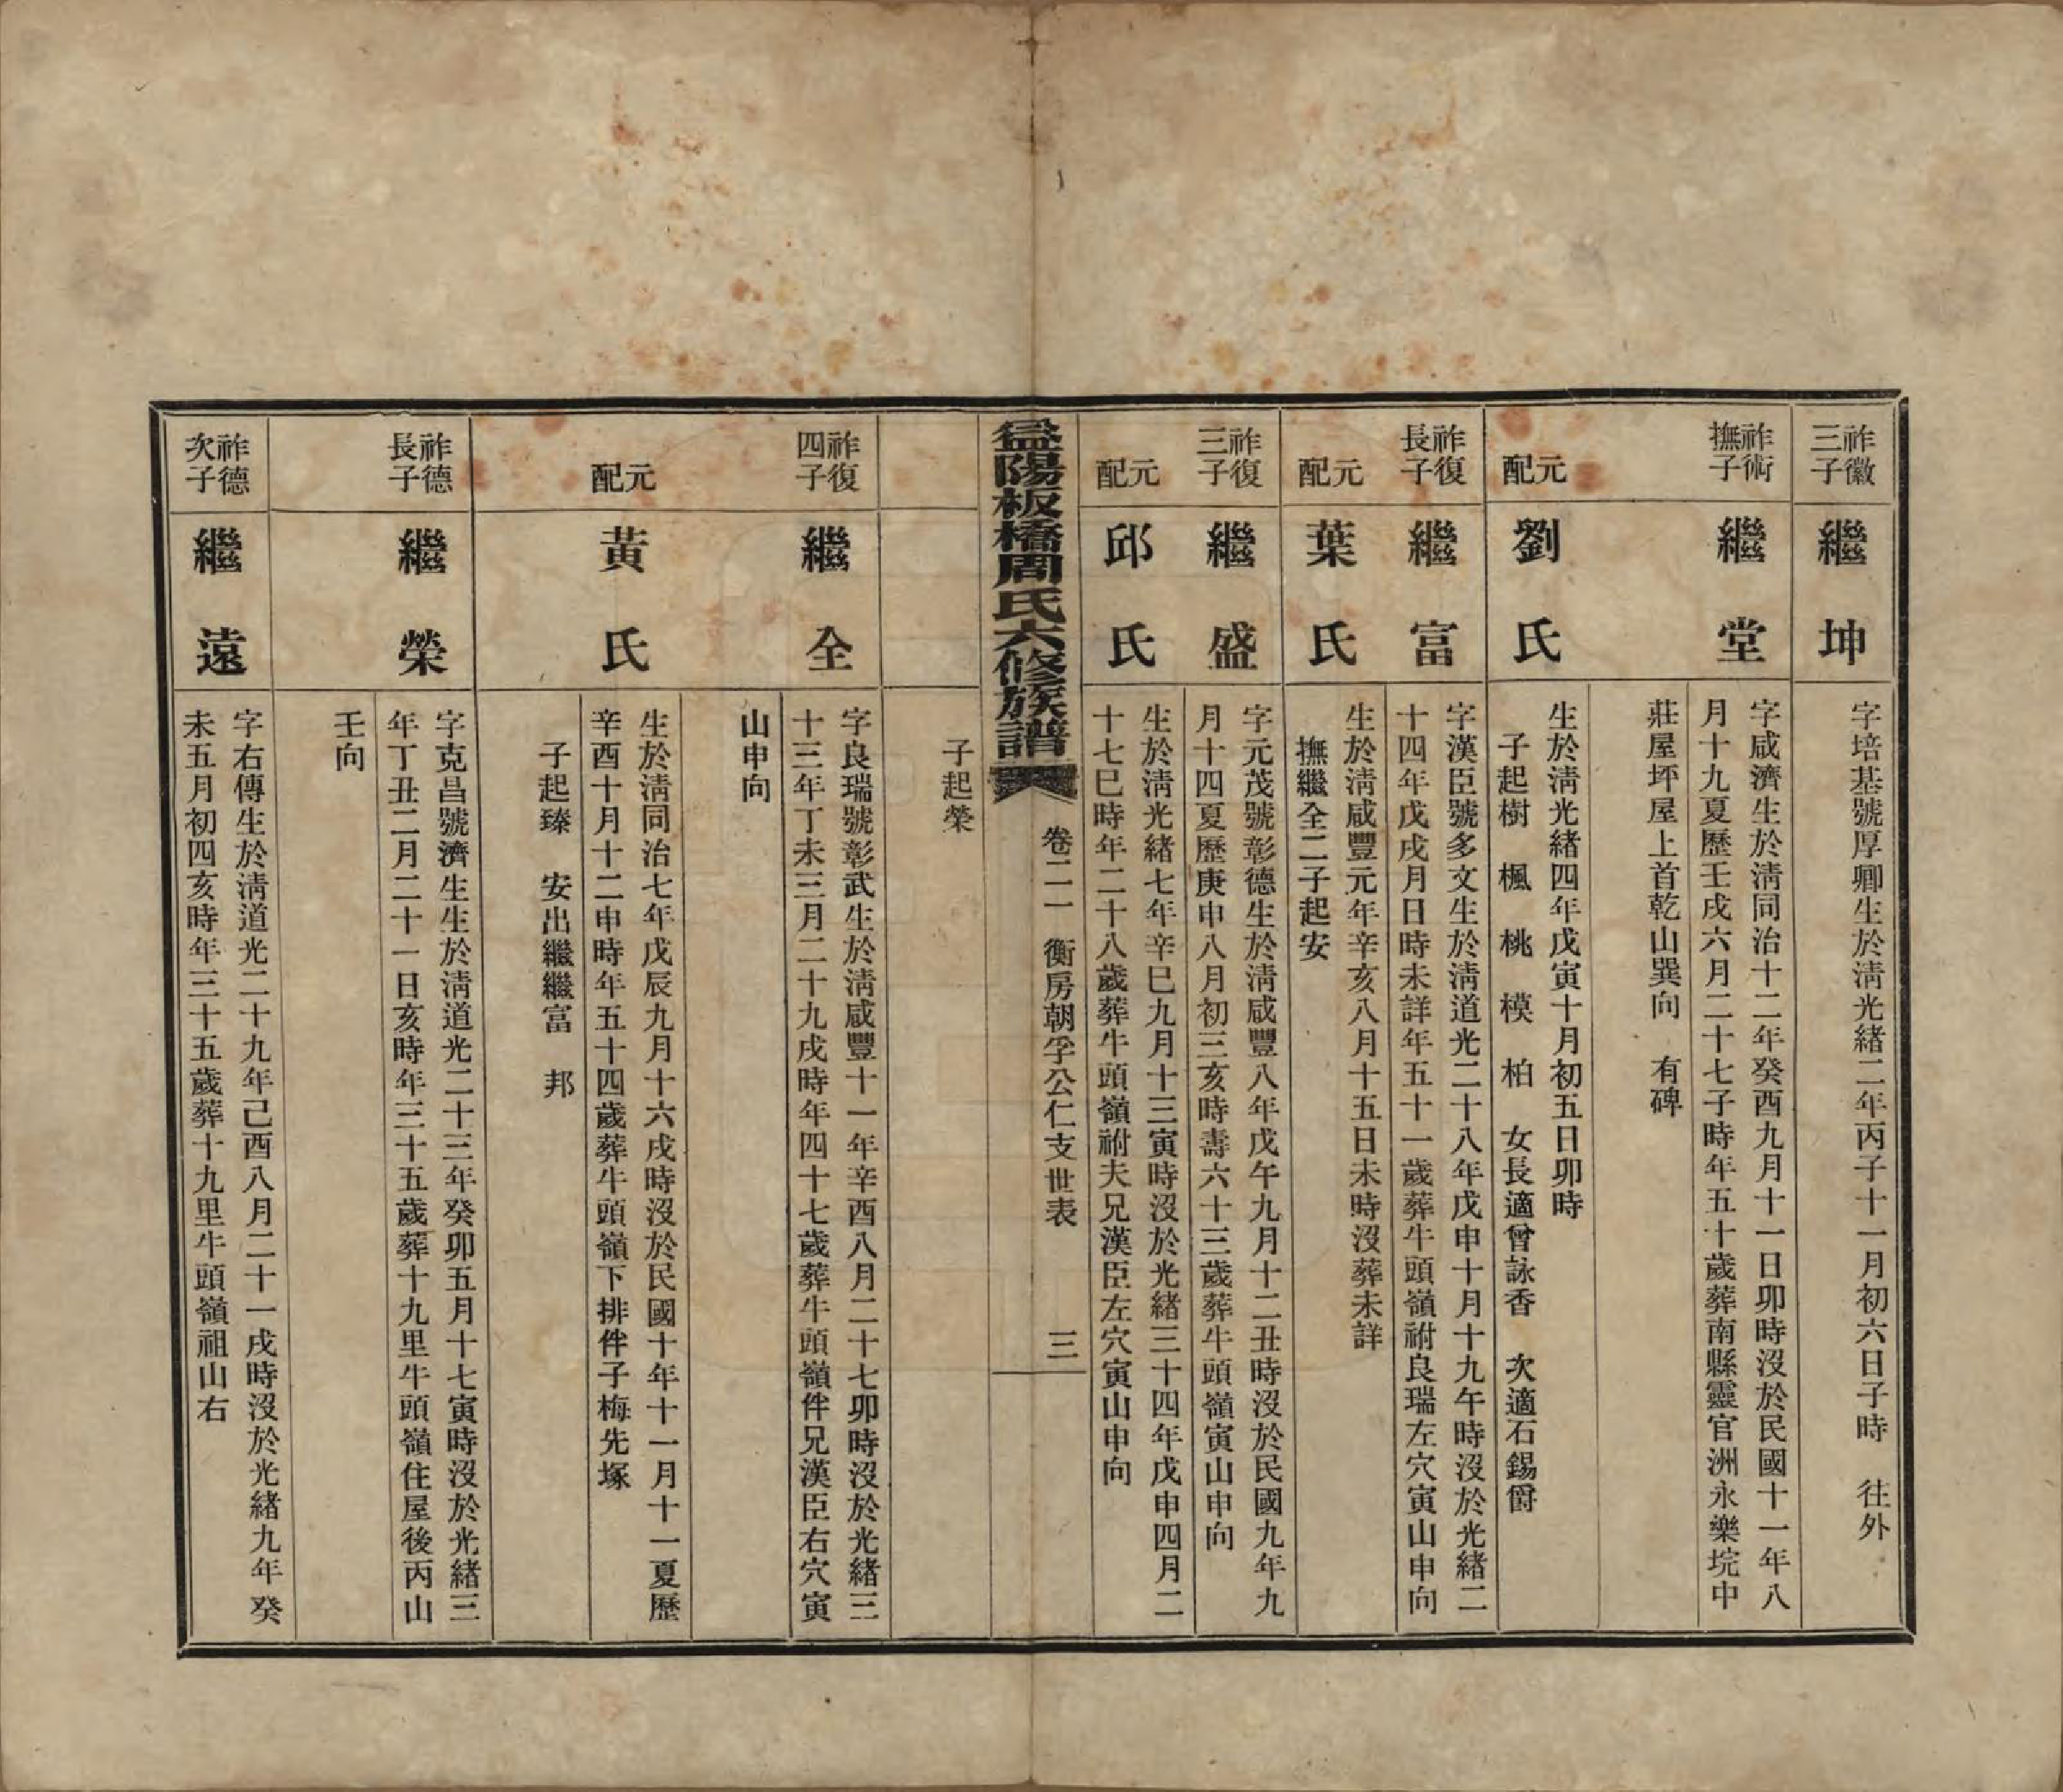 祚徽三子
繼坤
字培基號厚卿生於淸光緒二年丙子十一月初六日子時　往外
祚術撫子
繼堂
字咸濟生於淸同治十二年癸酉九月十一日卯時沒於民國十一年八
月十九夏歷壬戌六月二十七子時年五十歲葬南縣靈官洲永樂垸中
莊屋坪屋上首乾山巽向　有碑
元配
劉氏
生於淸光緒四年戊寅十月初五日卯時
子起樹　楓　桃　模　柏　女長適曾詠香　次適石錫爵
祚復長子
繼富
字漢臣號多文生於淸道光二十八年戊申十月十九午時沒於光緒二
十四年戊戌月日時未詳年五十一歲葬牛頭嶺祔良瑞左穴寅山申向
元配
葉氏
生於淸咸豐元年辛亥八月十五日未時沒葬未詳
撫繼全二子起安
祚復三子
繼盛
字元茂號彰德生於淸咸豐八年戊午九月十二丑時沒於民國九年九
月十四夏歷庚申八月初三亥時壽六十三歲葬牛頭嶺寅山申向
元配
邱氏
生於淸光緒七年辛巳九月十三寅時沒於光緒三十四年戊申四月二
十七巳時年二十八歲葬牛頭嶺祔夫兄漢臣左穴寅山申向
益陽板橋周氏六修族譜
卷二一　衡房朝孚公仁支世表
三
子起榮
祚復四子
繼全
字良瑞號彰武生於淸咸豐十一年辛酉八月二十七卯時沒於光緒三
十三年丁未三月二十九戌時年四十七歲葬牛頭嶺伴兄漢臣右穴寅
山申向
元配
黃氏
生於淸同治七年戊辰九月十六戌時沒於民國十年十一月十一夏歷
辛酉十月十二申時年五十四歲葬牛頭嶺下排伴子梅先塚
子起臻　安出繼繼富　邦
祚德長子
繼榮
字克昌號濟生生於淸道光二十三年癸卯五月十七寅時沒於光緒三
年丁丑二月二十一日亥時年三十五歲葬十九里牛頭嶺住屋後丙山
壬向
祚德次子
繼遠
字右傳生於淸道光二十九年己酉八月二十一戌時沒於光緒九年癸
未五月初四亥時年三十五歲葬十九里牛頭嶺祖山右